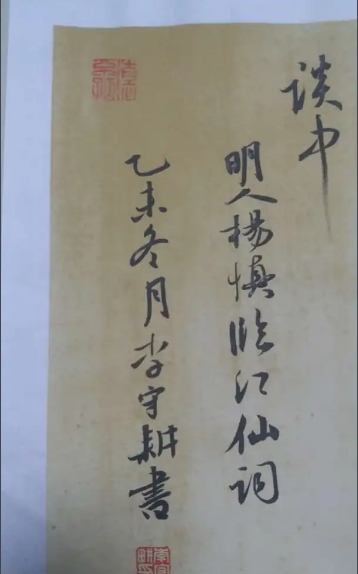 谈中
明人杨慎临江仙词
乙未冬月李守耕书